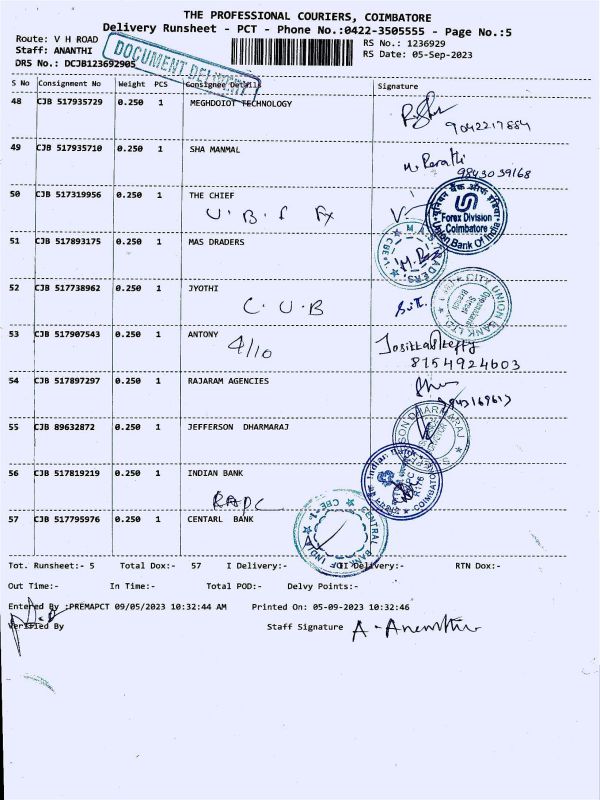 THE PROFESSIONAL COURIERS, COIMBATORE
Delivery Runsheet - PCT - Phone No.:0422-3505555 - Page No.:5
Route: V H ROAD
RS No.: 1236929
Staff: ANANTHI
RS Date: 05-Sep-2023
DRS No.: DCJB123692905
DOCUMENT DELIVERY
S No Consignment No Weight PCS Consignee Details Signature
48 CJB 517935729 0.250 1 MEGHDOIOT TECHNOLOGY
9042217884
49 CJB 517935710 0.250 1 SHA MANMAL
9843039168
50 CJB 517319956 0.250 1 THE CHIEF
U.B.I Fx
Forex Division
Coimbatore
Union Bank Of India
यूनियन बैंक ऑफ इंडिया
51 CJB 517893175 0.250 1 MAS DRADERS
M.A.S. TRADERS, CBE-1
52 CJB 517738962 0.250 1 JYOTHI
C.U.B
CITY UNION BANK LTD.
53 CJB 517907543 0.250 1 ANTONY
4/10
8154924603
54 CJB 517897297 0.250 1 RAJARAM AGENCIES
55 CJB 89632872 0.250 1 JEFFERSON DHARMARAJ
SON DHARMARAJ
56 CJB 517819219 0.250 1 INDIAN BANK
RAPC
Indian Bank
COIMBATORE
57 CJB 517795976 0.250 1 CENTARL BANK
CENTRAL BANK OF INDIA CBE-1
Tot. Runsheet:- 5 Total Dox:- 57 I Delivery:- II Delivery:- RTN Dox:-
Out Time:- In Time:- Total POD:- Delvy Points:-
Entered By :PREMAPCT 09/05/2023 10:32:44 AM Printed On: 05-09-2023 10:32:46
Verified By Staff Signature